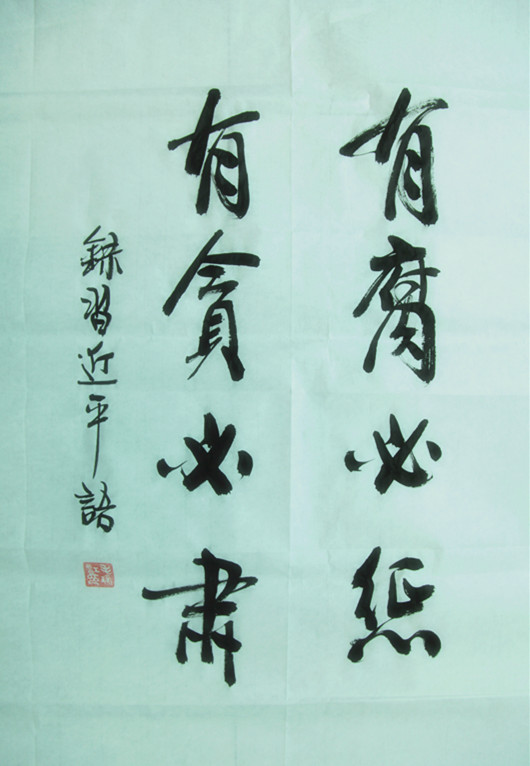 有腐必惩
有贪必肃
錄習近平語